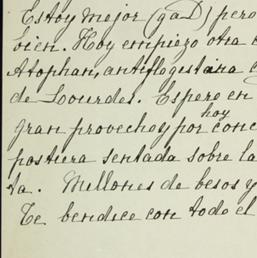 Estoy mejor (gaD) pero
bien. Hoy empiezo otra
Atophan, antiflogestina
de Lourdes. Espero en
gran provecho y por hoy conc
postrera sentada sobre la
ta. Millones de besos y
Te bendice con todo el